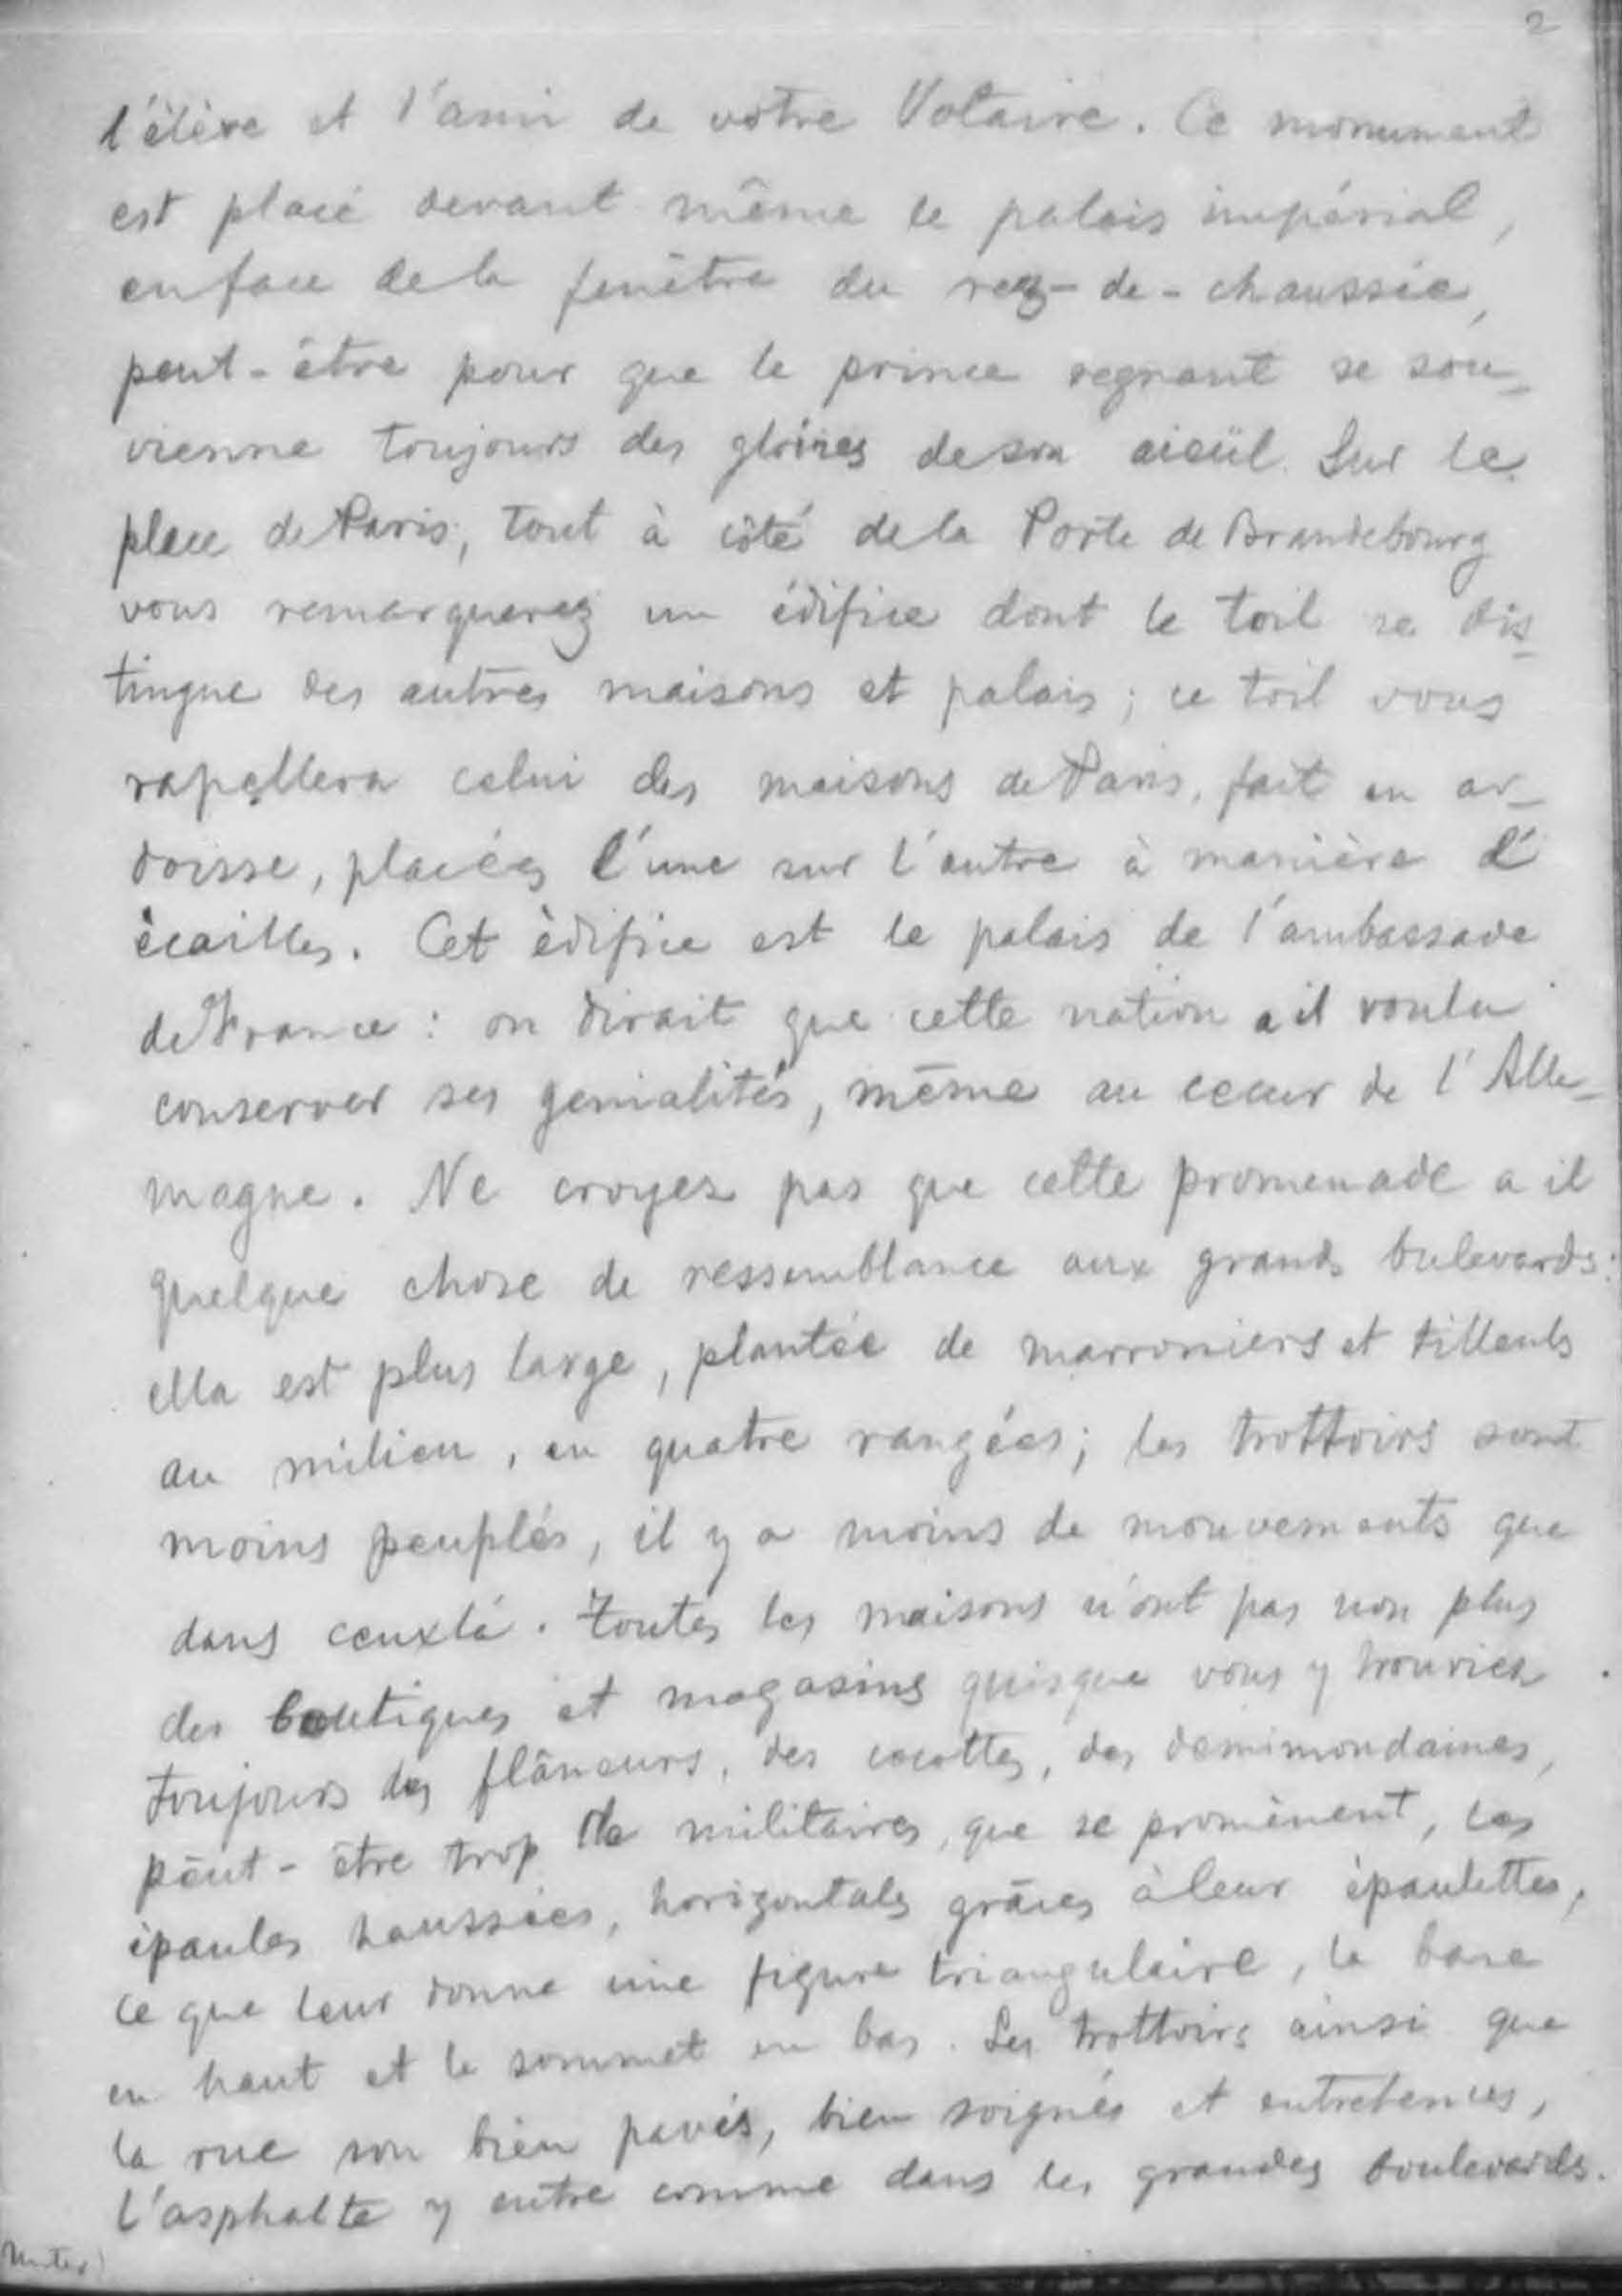 2
l'élève et l'ami de votre Votaire. Ce monument
est placé devant même le palais impérial,
enface dela fenêtre du rez-de-chaussée,
peut-être pour que le prince regnant se sou-
vienne toujours des gloires deson aieül. Sur le
place de Paris, tout à côté dela Porte de Brandebourg
vous remarquerez un édifice dont le toil se dis-
tingue des autres maisons et palais; ce toil vous
rapellera celui des maisons de Paris, fait en ar-
doisse, placées l'une sur l'autre à manière d'
écailles. Cet èdifice est le palais de l'ambassade
de France: on dirait que cette nation a il voulu
conserver ses genialités, même au coeur de l'Alle-
magne. Ne croyez pas que cette promenade a il
quelque chose de ressemblance aux grands bulevards:
ella est plus large, plantée de marroniers et tilleuls
au milieu, en quatre rangées; les trottoirs sont
moins peuplés, il y a moins de mouvements que
dans ceuxlà. Toutes les maisons n'ont pas non plus
des boutiques et magasins quisque vous y trouviez
toujours des flâneurs, des cocottes, des demimondaines,
pêut-être trop de militaires, que se promènent, les
èpaules haussées, horizontales grâces àleur èpaulettes,
ce que leur donne une figure triangulaire, la base
en haut et le sommet en bas. Les trottoirs ainsi que
la rue son bien pavés, bien soignés et entretenues,
l'asphalte y entre comme dans les grandes boulevards.